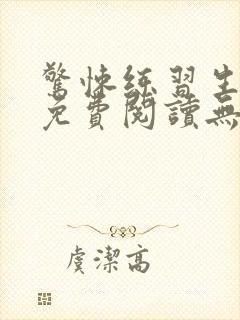 驚悚練習生
免費閱讀無
虞潔高